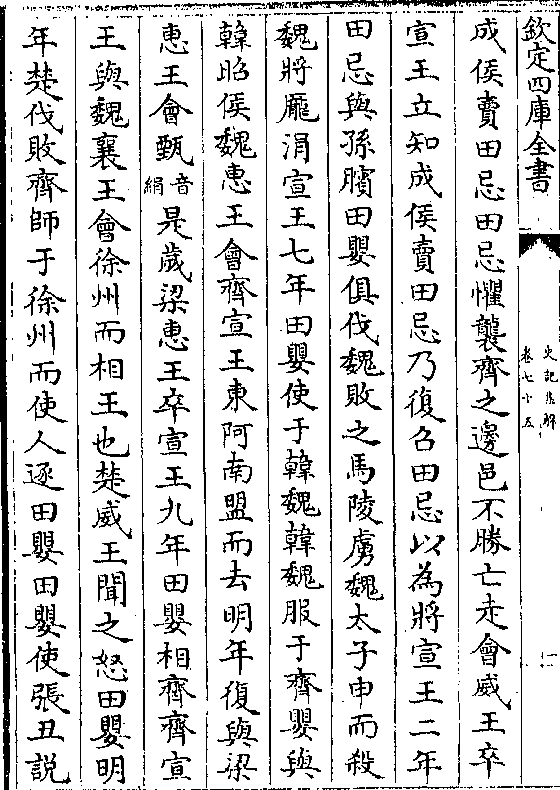 欽定四庫全書
史記集解
卷七十五
一
成侯賣田忌田忌懼襲齊之邊邑不勝亡走會威王卒
宣王立知成侯賣田忌乃復召田忌以為將宣王二年
田忌與孫臏田嬰俱伐魏敗之馬陵虜魏太子申而殺
魏將龐涓宣王七年田嬰使于韓魏韓魏服于齊嬰與
韓昭侯魏惠王會齊宣王東阿南盟而去明年復與梁
惠王會甄音絹是歲梁惠王卒宣王九年田嬰相齊齊宣
王與魏襄王會徐州而相王也楚威王聞之怒田嬰明
年楚伐敗齊師于徐州而使人逐田嬰田嬰使張丑說